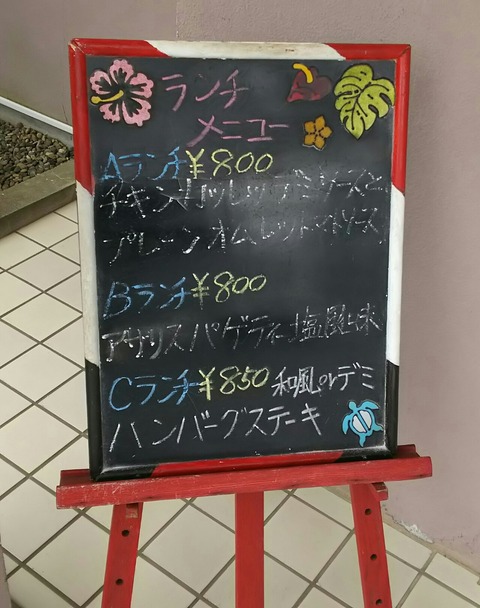 ランチ
メニュー
Aランチ¥800
チキンカツレツ デミソースと
プレーンオムレツトマトソース
Bランチ¥800
アサリスパゲティー塩風味
Cランチ¥850 和風orデミ
ハンバーグステーキ